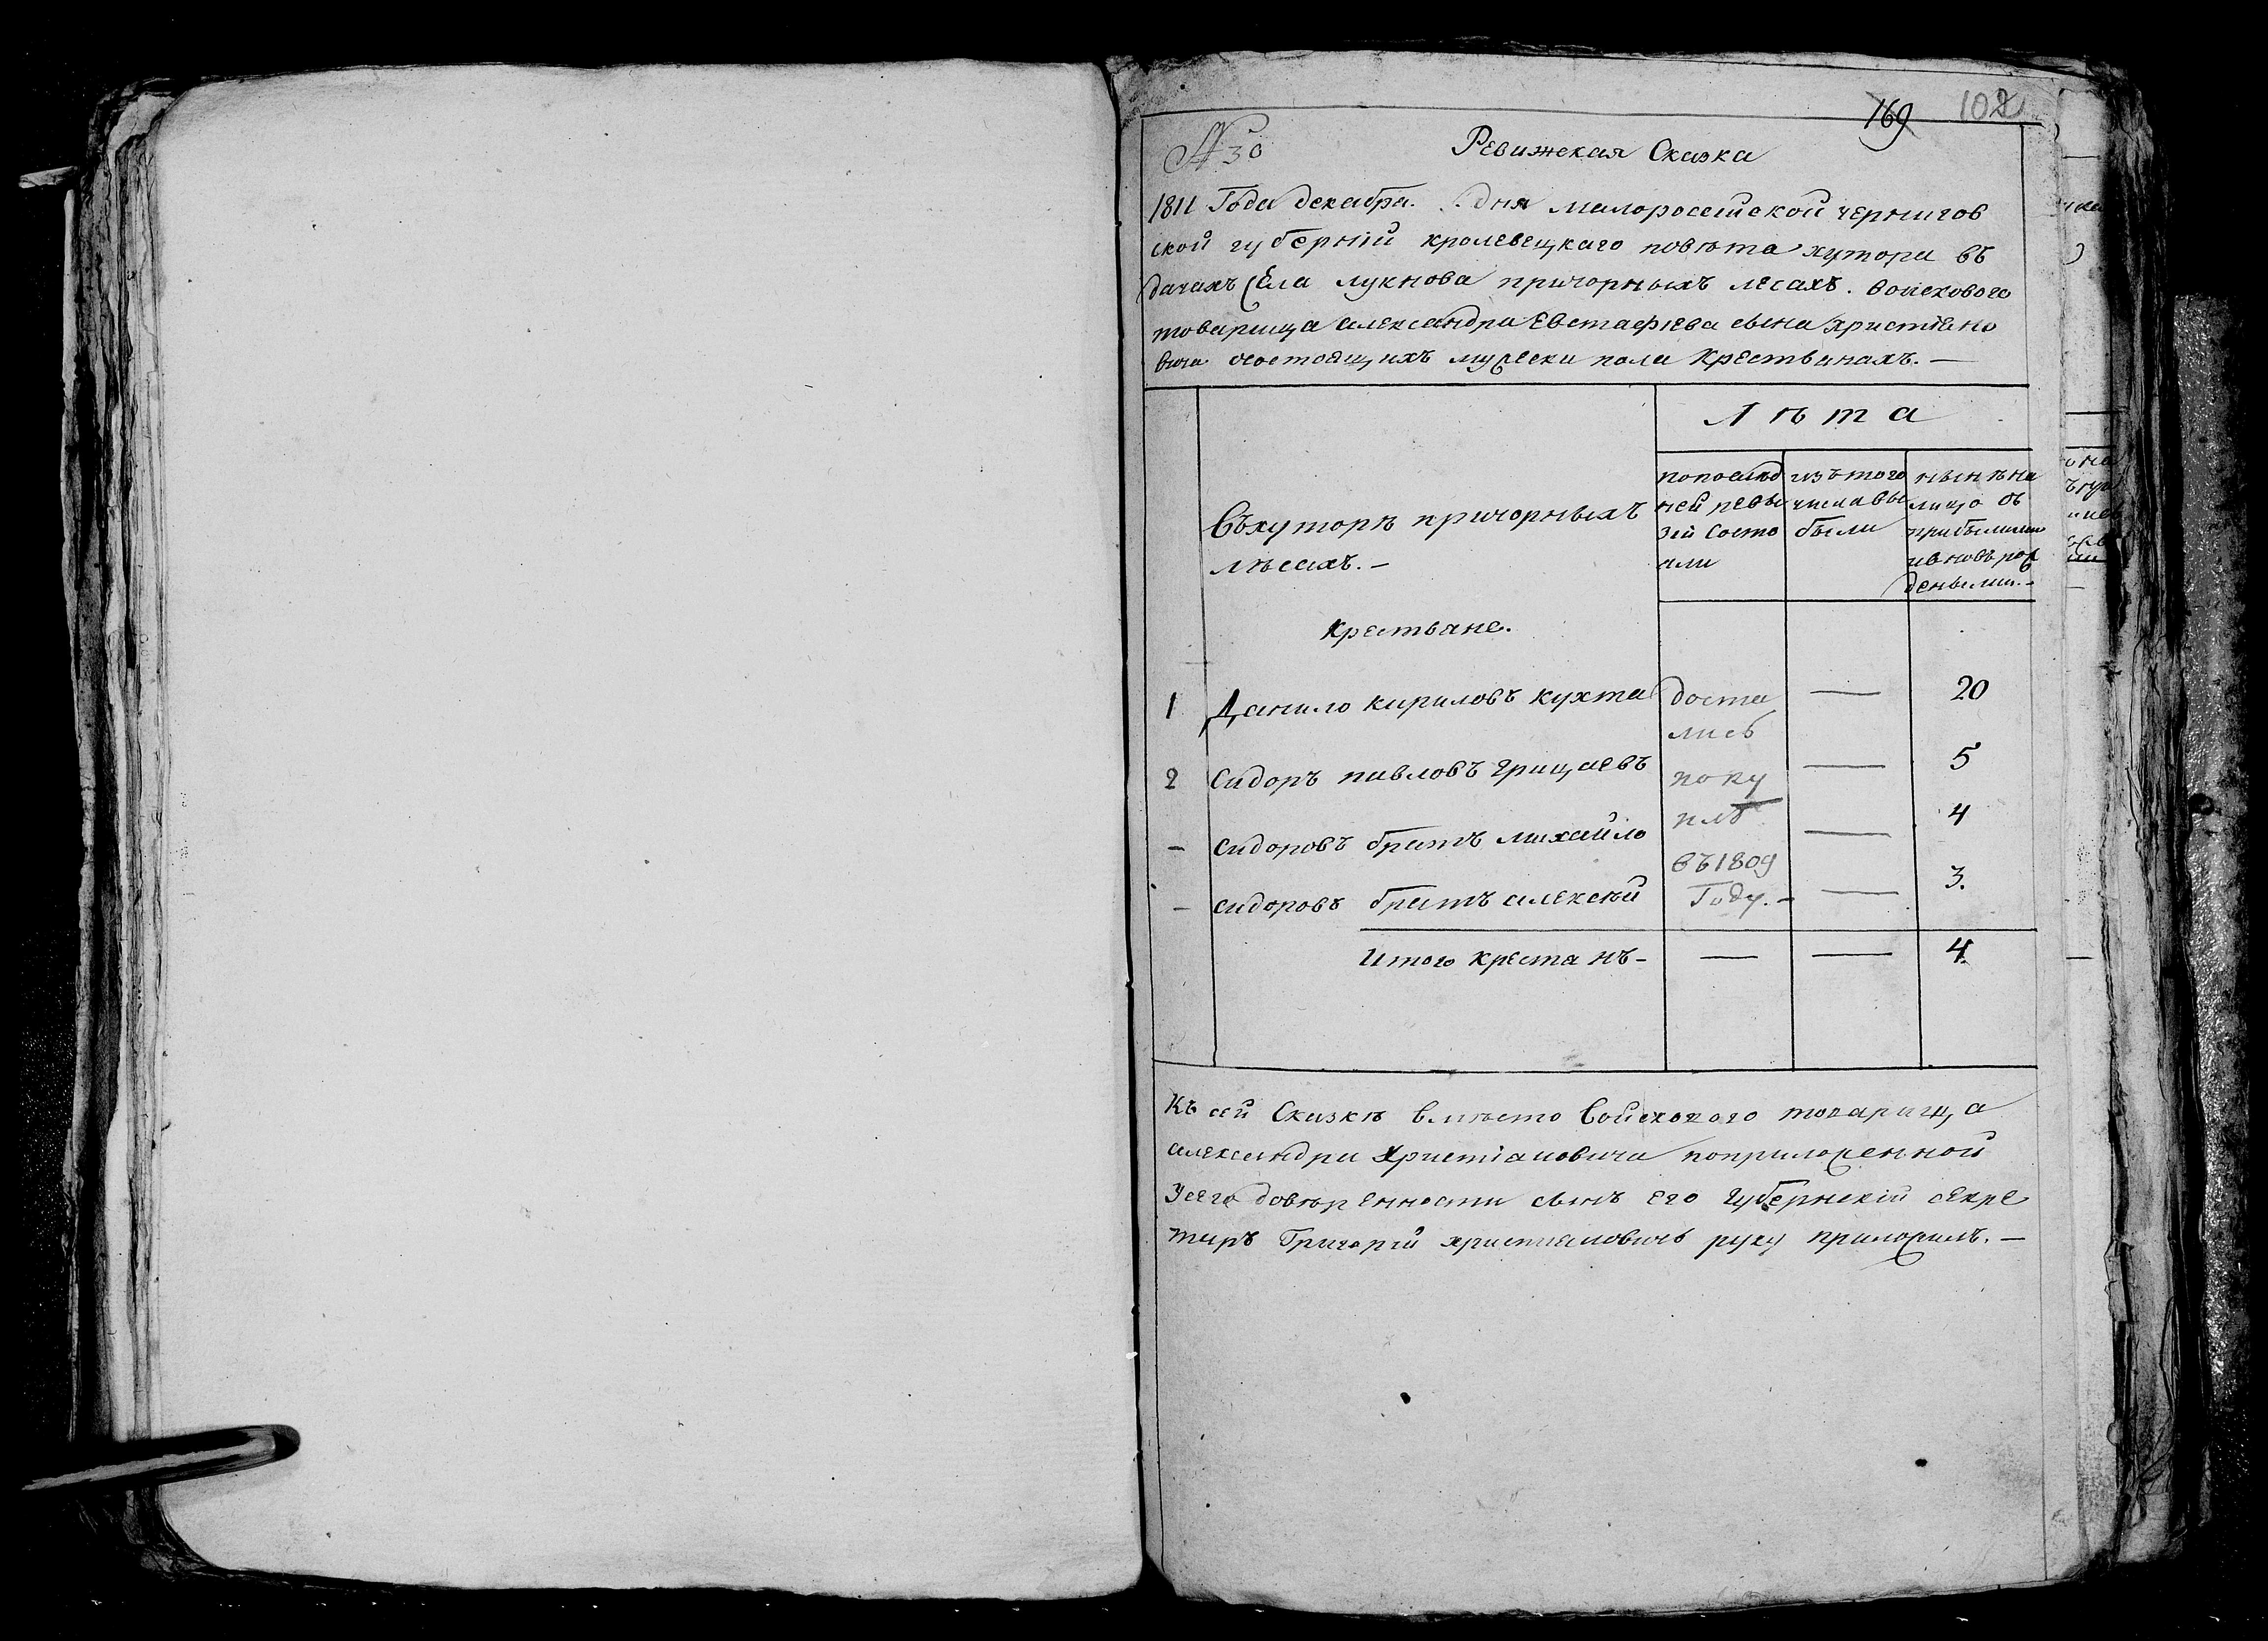 169 102
№ 30 Ревижская Сказка
1811 Года декабра. дня малоросеийской чернигов
ской губерніи кролевецкаго повѣта хутора въ
дачахъ Села лукнова причорныхъ лесахъ. войскового
товарища александра Евстафиева сына христіано
вича осостоящихъ мужески пола крествянахъ. —
Лѣта
Въхуторѣ причорныхъ
лѣсахъ. —
попослѣд
ней реви
зіи Состо
али
изътого
числавы
были
нынѣна
лицо съ
прибылими
ивновърож
денными. —
крествяне.
1 Данило кириловъ кухта доста — 20
лись
2 Сидоръ павловъ грицаевъ поку — 5
плѣ
— Сидоровъ братъ михайло — 4
въ1809
— сидоровъ братъ алексѣй Году. — — 3.
Итого крестанъ — — — 4.
Къ сей Сказкѣ вмѣсто Войскового товарища
александра Христіановича поприложенной
Усего довѣренности сынъ его Губернскій секре
таръ Григорій христиановичъ руку приложилъ. —